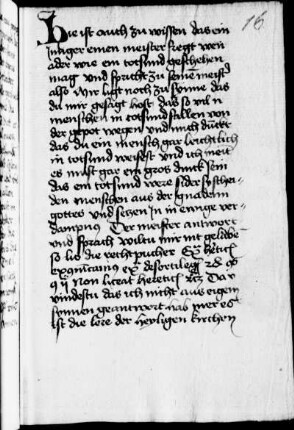 16
Hie ist auch zu wissen das ein
junger einen meister fregt wen
ader wie ein totsund geschehen
mag und spricht zu seinem meist
also Mir ligt noch zu synne das
du mir gesagt host das so vil
menschen in totsund fallen von
der gepot wegen und mich dunckt
das du ein mensch gar leichtlich
in totsund weisest und ich meit
es must gar ein gros dinck sein
das ein totsund were sider sy schei-
den menschen aus der gnaden
gottes und seczen in in ewige ver-
dampnus Der meister antwort
und sprach wiltu mir nit gelaube
so lis die rechtpucher
non liceat Dar
vindestu das ich nicht aus eigem
synnen geantwort hab wer es
ist die lere der heyligen kirchen